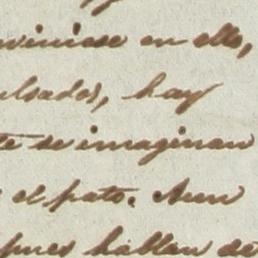 viniese en ello,
ulsados, hay
te se imaginan
el pato. Aun
pues hablan de